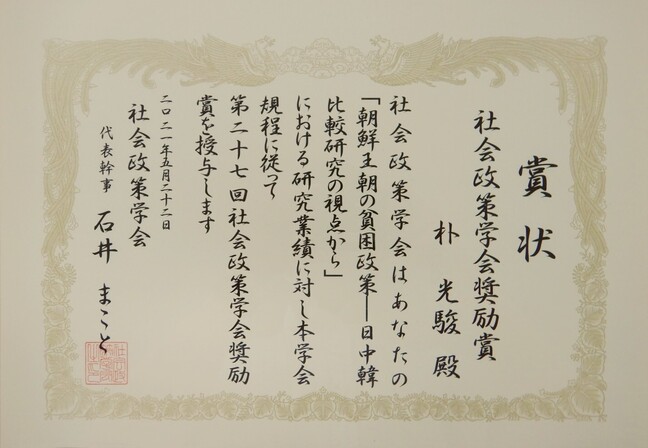 賞状
社会政策学会奨励賞
朴 光駿 殿
社会政策学会はあなたの
「朝鮮王朝の貧困政策―日中韓
比較研究の視点から」
における研究業績に対し本学会
規程に従って
第二十七回社会政策学会奨励
賞を授与します
二〇二一年五月二十二日
社会政策学会
代表幹事 石井 まこと